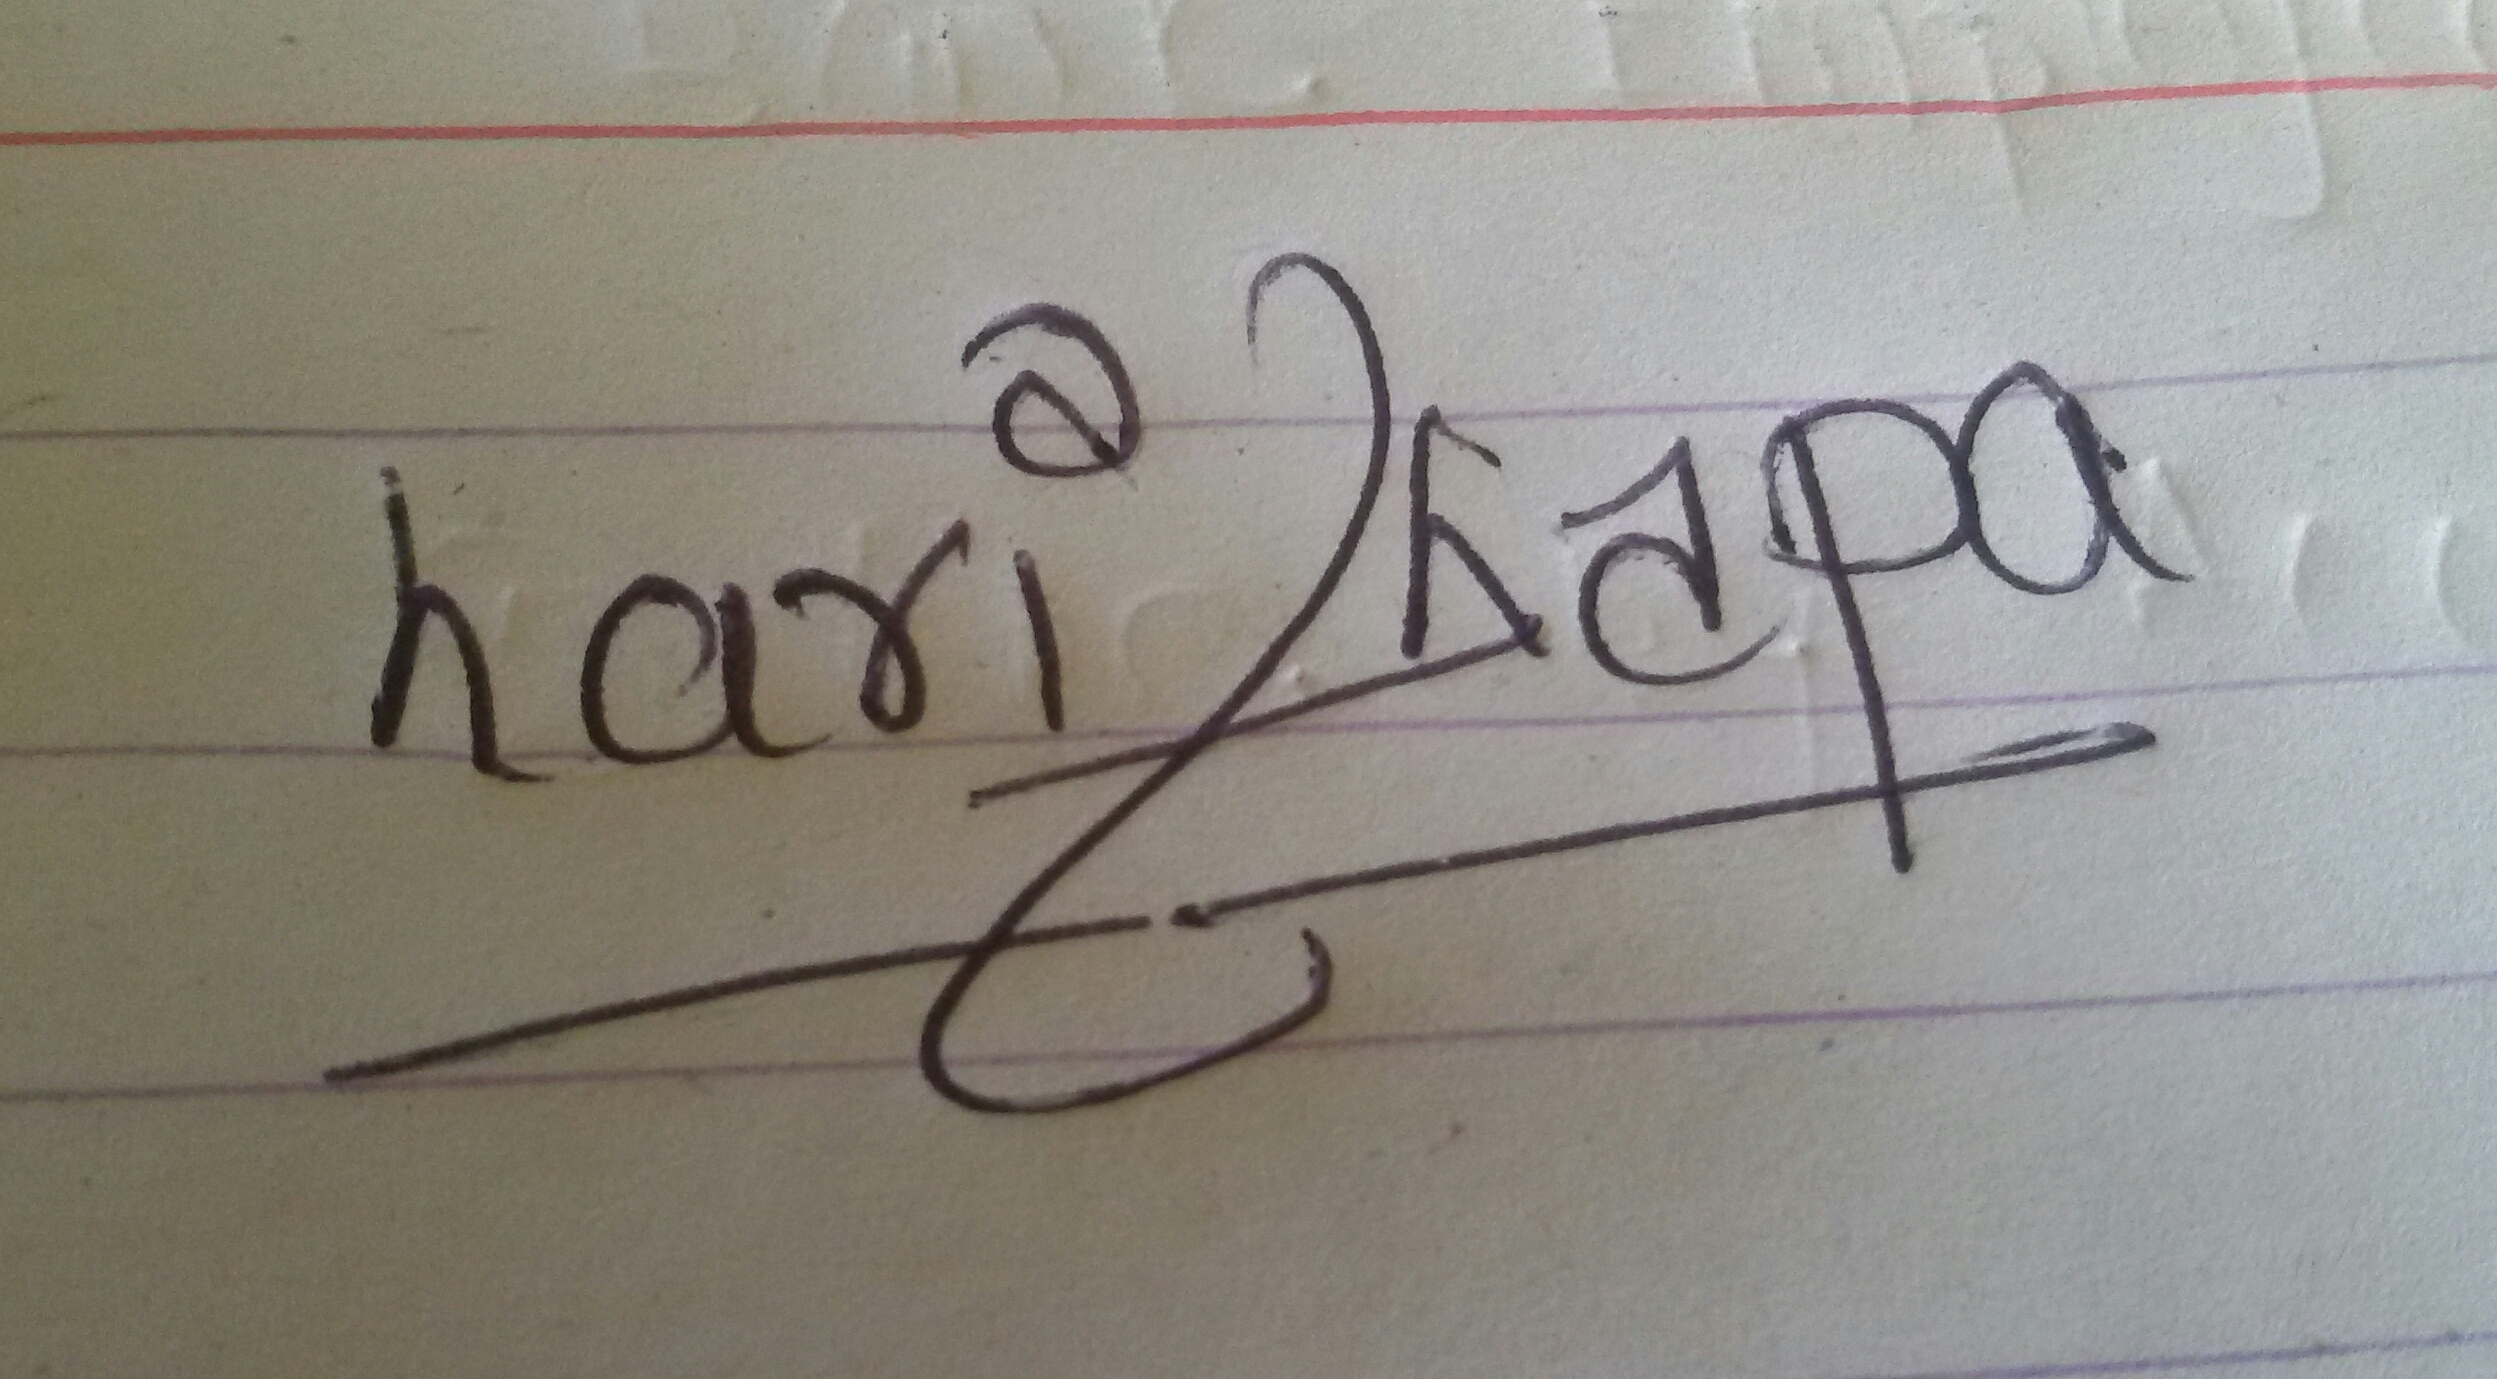 hari Thapa